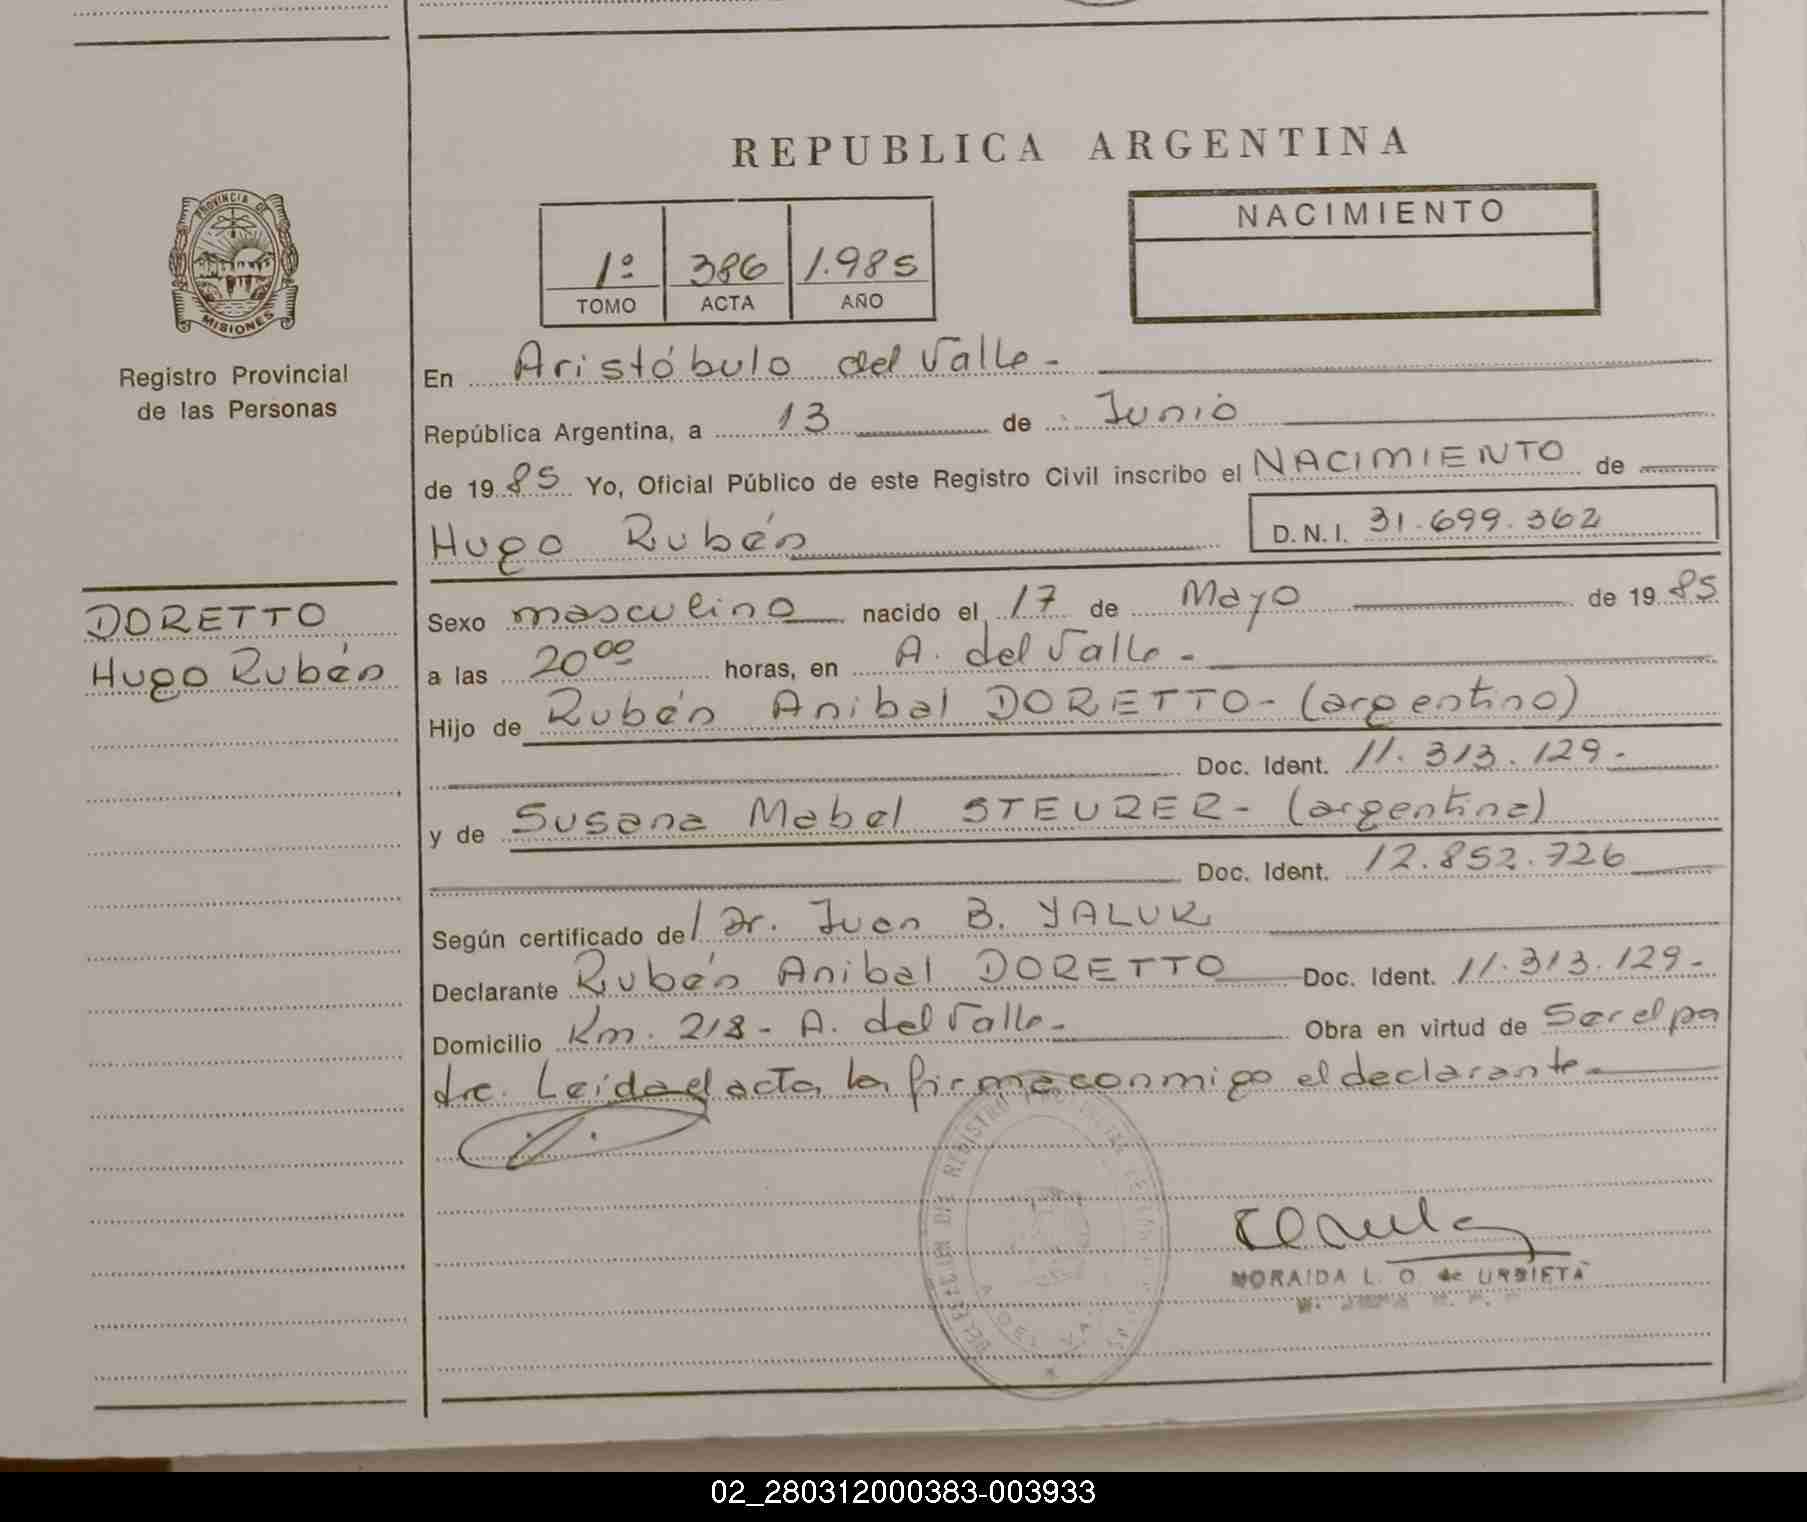 REPUBLICA ARGENTINA
PROVINCIA DE
MISIONES
Registro Provincial
de las Personas
1º 386 1.985
TOMO ACTA AÑO
NACIMIENTO
En Aristóbulo del Valle -
República Argentina, a 13 de Junio
de 1985 Yo, Oficial Público de este Registro Civil inscribo el NACIMIENTO de
Hugo Rubén D.N.I. 31.699.362
DORETTO
Hugo Rubén
Sexo masculino nacido el 17 de Mayo de 1985
a las 20⁰⁰ horas, en A. del Valle -
Hijo de Rubén Anibal DORETTO - (argentino)
Doc. Ident. 11.313.129 -
y de Susana Mabel STEURER - (argentina)
Doc. Ident. 12.852.726
Según certificado del Dr. Juan B. YALUK
Declarante Rubén Anibal DORETTO Doc. Ident. 11.313.129 -
Domicilio Km. 218 - A. del Valle - Obra en virtud de Ser el pa
dre. Leída el acta, la firma conmigo el declarante -
MORAIDA L. O. de URBIETA
02_280312000383-003933